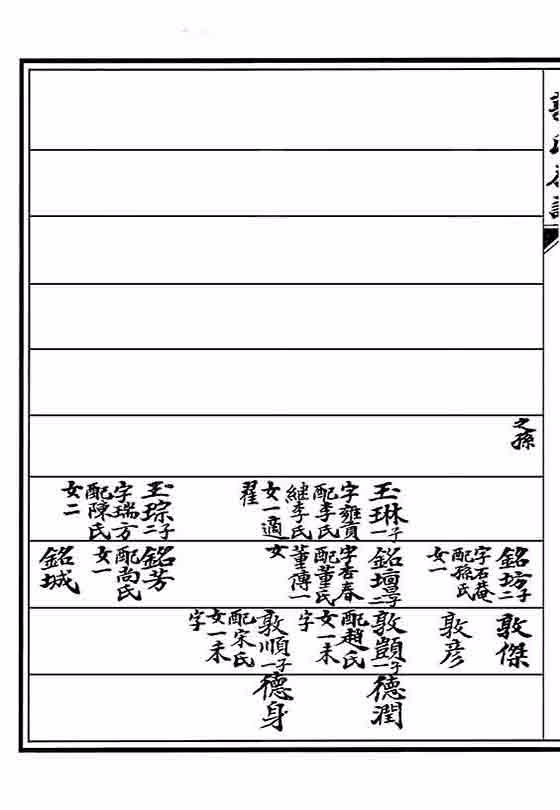 之孫
玉琳一子
字雍貢
配李氏
継李氏
女一適
翟
玉琮二子
字瑞方
配陳氏
女二
銘坊二子
字石菴
配孫氏
女一
銘壇二子
字杏春
配董氏
董傳一
女
銘芳
配尚氏
女一
銘城
敦傑
敦彦
敦顗一子
配趙氏
女一未
字
敦順一子
配宋氏
女一未
字
德潤
德身